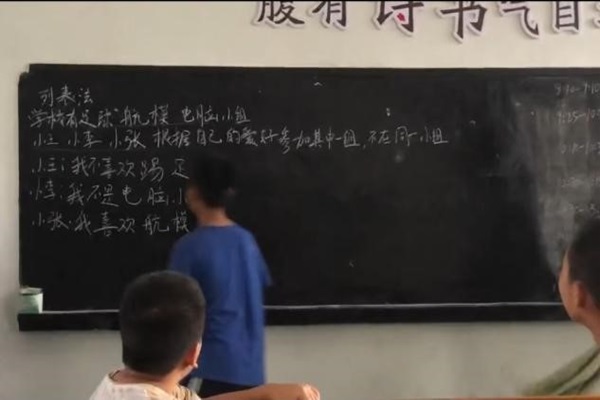 腹有诗书气自
列表法
学校有足球 航模 电脑小组
小王 小李 小张 根据自己的爱好参加其中一组,不在同一小组
小王:我不喜欢踢足
小李:我不是电脑小
小张:我喜欢航模